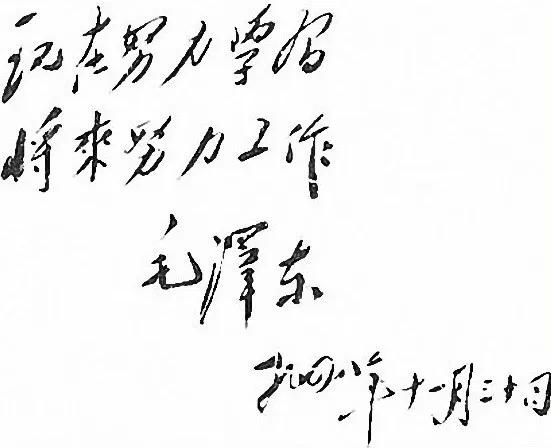 现在努力学习
将來努力工作
毛澤东
一九四八年十一月三十日